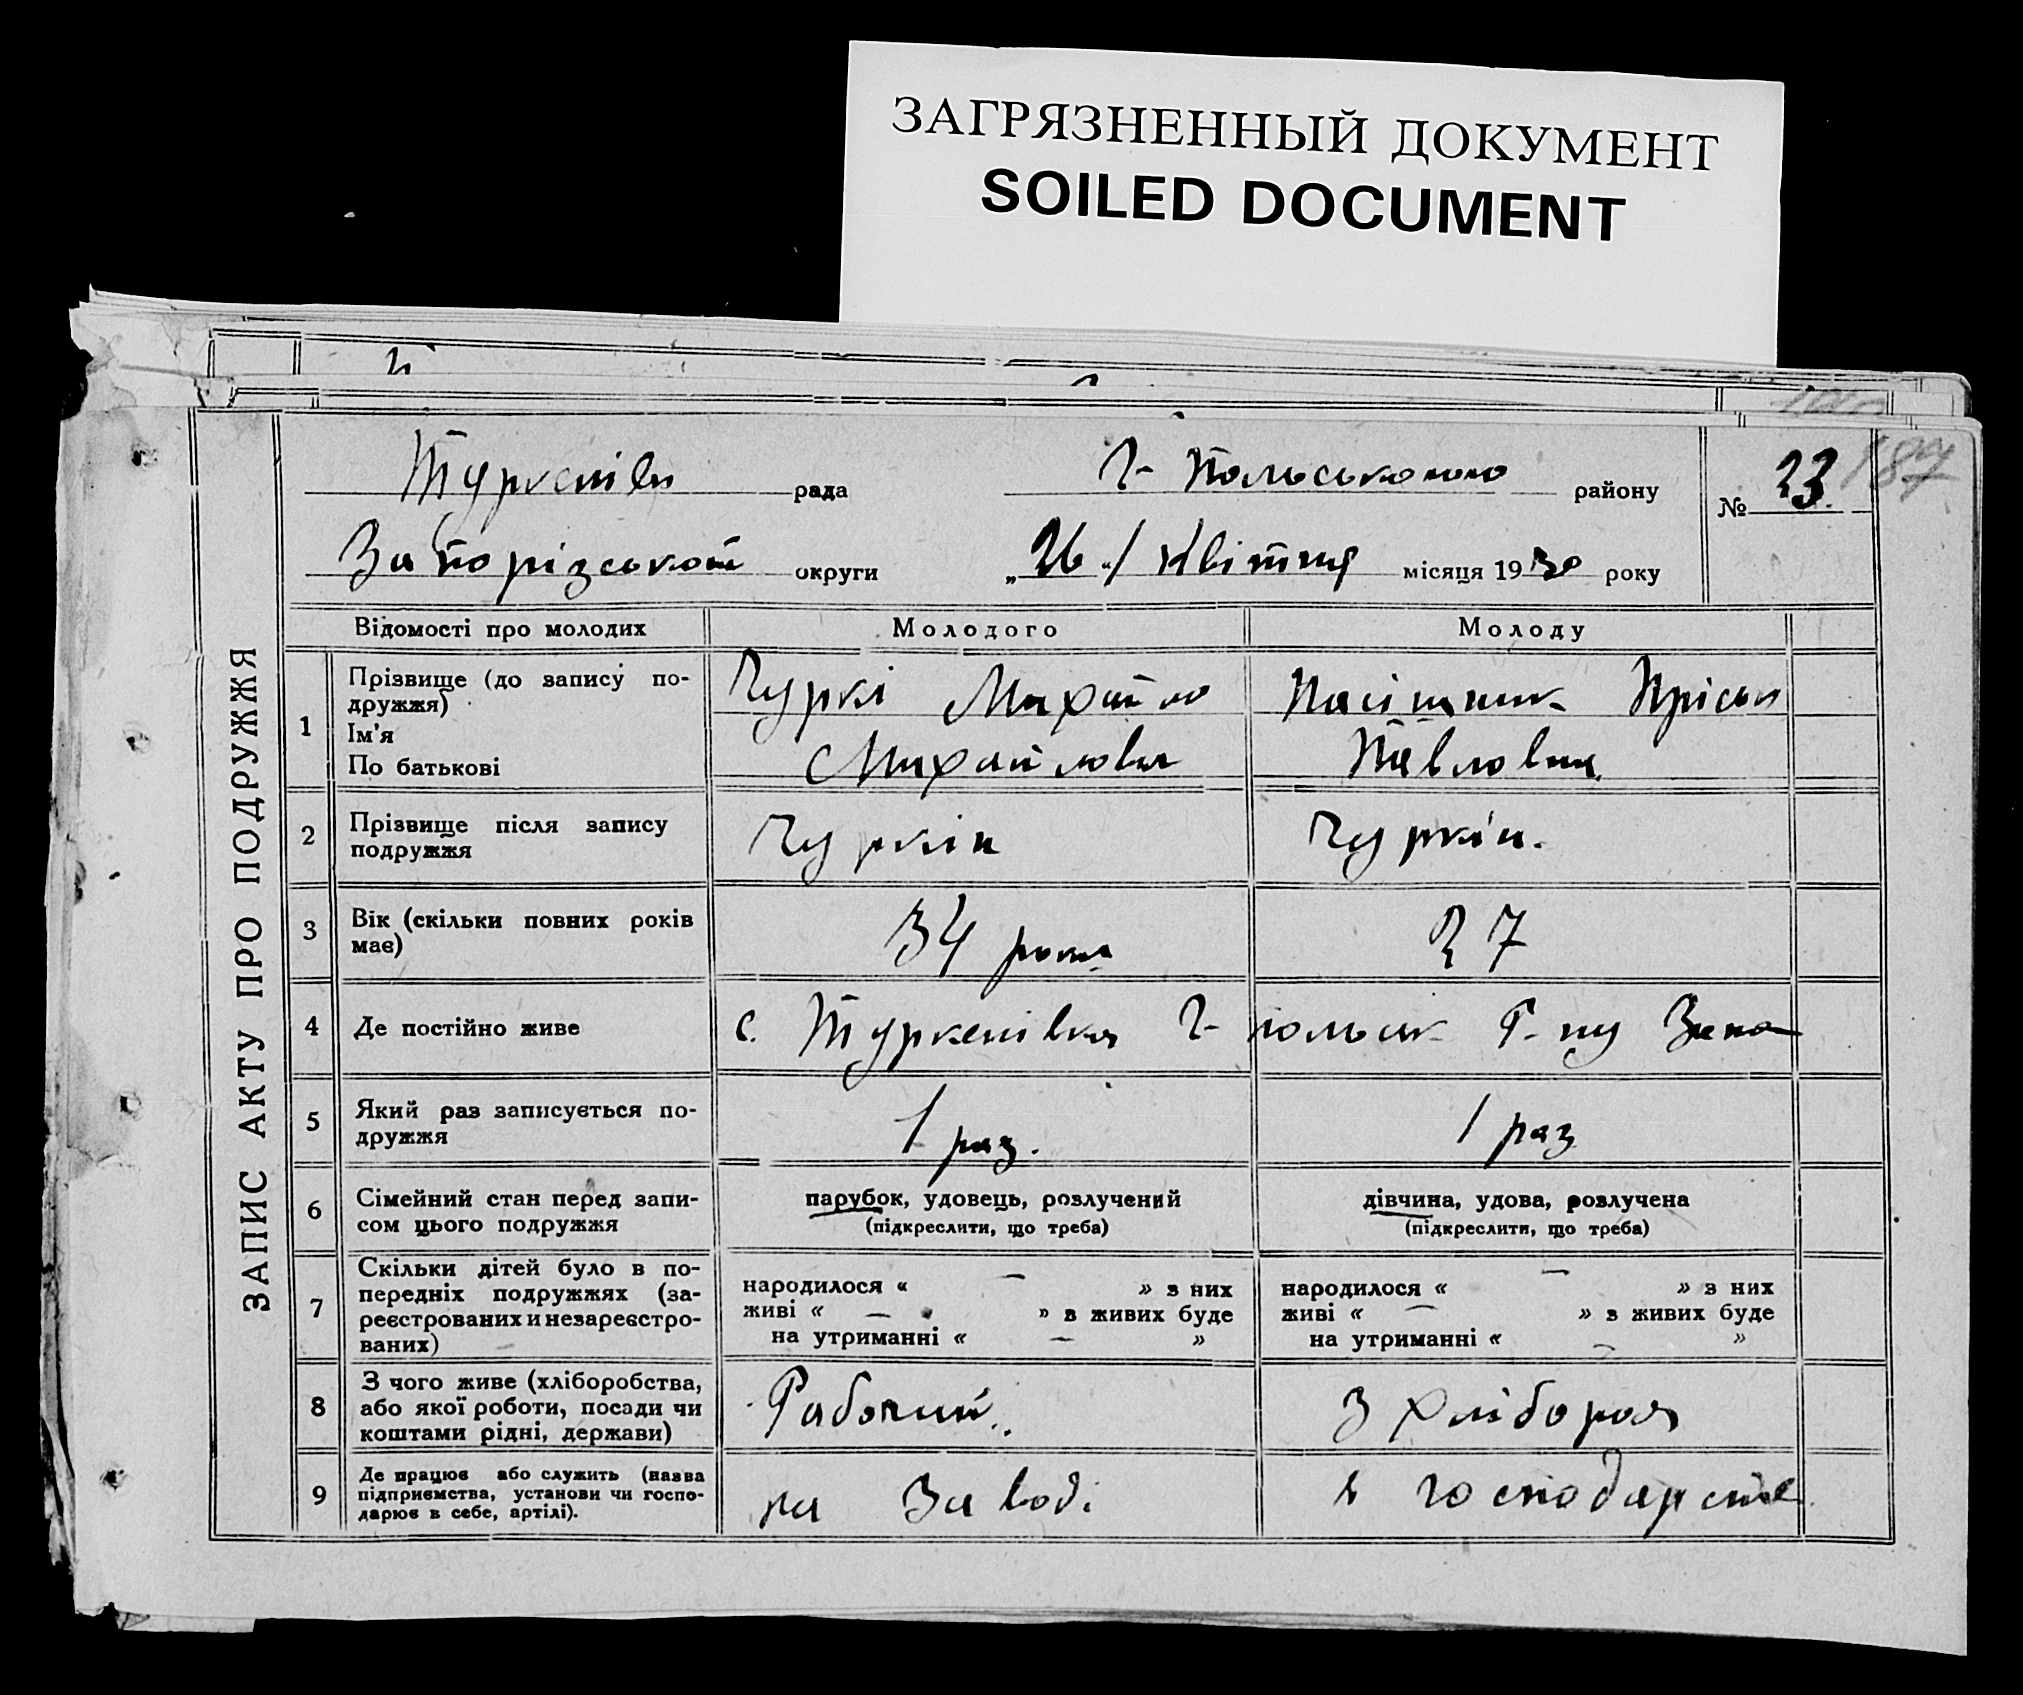 ЗАГРЯЗНЕННЫЙ ДОКУМЕНТ
SOILED DOCUMENT
187
ЗАПИС АКТУ ПРО ПОДРУЖЖЯ
рада Г- Польського району № 23.
Запорізської округи „26“ / Квітня місяця 1930 року
Відомості про молодих Молодого Молоду
1 Прізвище (до запису по-
дружжя)
Ім'я
По батькові
Чуркі Михайло
Михайлови
Пасішник Пріська
Павловна
2 Прізвище після запису
подружжя
Чуркін
Чуркін.
3 Вік (скільки повних років
має)
34 роки
27
4 Де постійно живе
с. Туркенівка Г- польськ Р-ну Запо
5 Який раз записується по-
дружжя
1 раз.
1 раз
6 Сімейний стан перед запи-
сом цього подружжя
парубок, удовець, розлучений
(підкреслити, що треба)
дівчина, удова, розлучена
(підкреслити, що треба)
7 Скільки дітей було в по-
передніх подружжях (за-
реєстрованих и незареєстро-
ваних)
народилося « — » з них
живі « — » з живих буде
на утриманні « — »
народилося « — » з них
живі « — » з живих буде
на утриманні « — »
8 З чого живе (хліборобства,
або якої роботи, посади чи
коштами рідні, держави)
Рабочий.
З хлібороб
9 Де працює або служить (назва
підприємства, установи чи госпо-
дарює в себе, артілі).
на Заводі
в господарстве